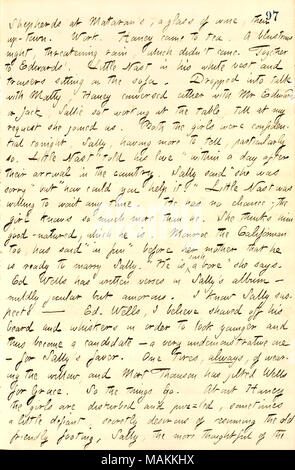 97
Shepherds at Mataran's, a glass of wine, then
up-town. Work. Haney came to tea. A blustrous
night, threatening rain, which didn't come. Together
to Edwards'. Little Nast in his white vest and
trousers sitting on the sofa. Dropped into talk
with Matty. Haney conversed either with Mr Edwards
or Jack. Sallie sat working at the table till at my
request she joined us. Both the girls were confiden-
tial tonight, Sally, having more to tell, particularly
so. Little Nast "told his love" within a day after
their arrival in the country. Sally said "she was
sorry" but "how could you help it?" Little Nast was
willing to wait any time. He has no chance; the
girl knows so much more than he. She thinks him
good-natured, which he is. Monroe the Californian
too has said "in fun" before her mother that he
is ready to marry Sally. "He is such a bore" she says.
Ed Wells has written verses in Sally's album —
mildly peculiar but amorous. I know Sally sus-
pects — Ed. Wells, I believe shaved off his
beard and whiskers in order to look younger and
thus become a candidate — a very undemonstrative one
— for Sally's favor. One tires, always, of wear-
ing the willow and Mort Thomson has jilted Wells
for Grace. So the things go. About Haney
the girls are disturbed and puzzled, sometimes
a little defiant, secretly desirous of resuming the old
friendly footing, Sally, the more thoughtful of the
alamy
Image ID: MAKKHX
www.alamy.com